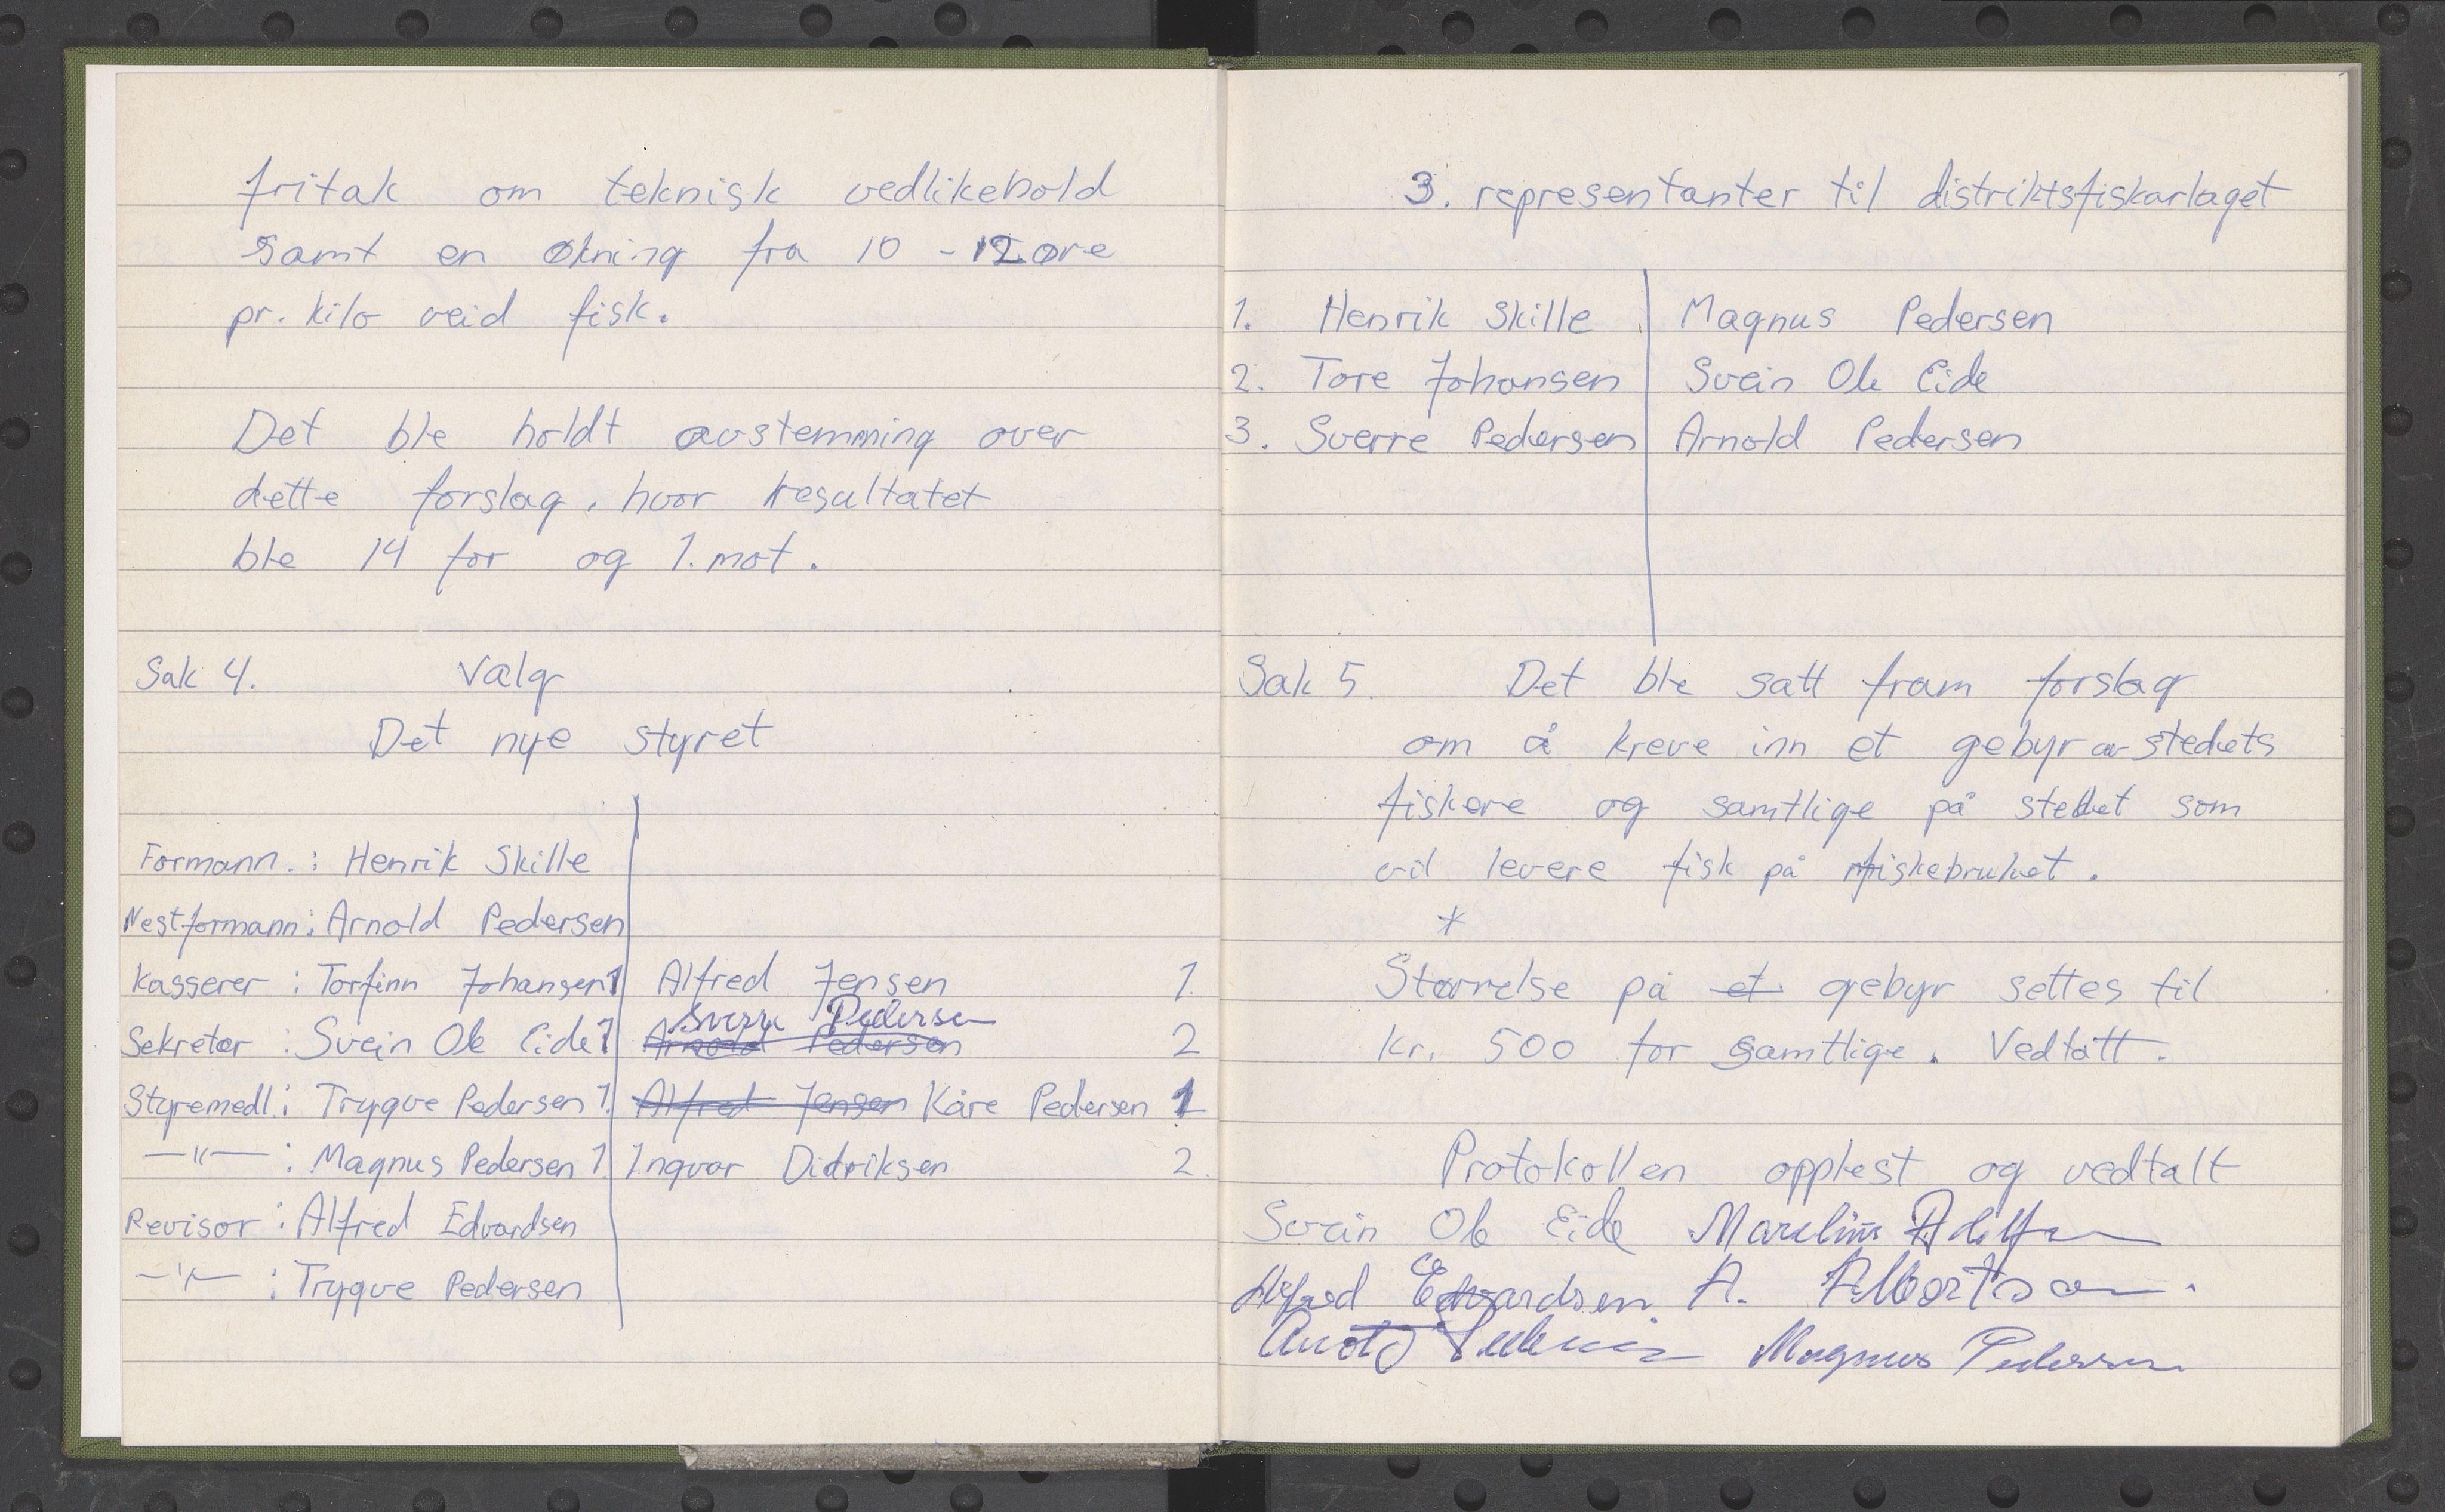 fritak om teknisk vedlikehold
samt en økning fra 10 - 12 øre
pr. kilo veid fisk.
Det ble holdt avstemming over
dette forslag, hvor resultatet
ble 14 for og 1. mot.
Sak 4. Valg
Det nye styret
Formann.: Henrik Skille
Nestformann: Arnold Pedersen
Kasserer : Torfinn Johansen 1 Alfred Jensen 1.
Sverre Pedersen
Sekretær : Svein Ole Eide 1 Arnold Pedersen 2
Styremedl.: Trygve Pedersen 1. Alfred Jensen Kåre Pedersen 1
—"— : Magnus Pedersen 1. Ingvar Didriksen 2.
Revisor : Alfred Edvardsen
—"— : Trygve Pedersen
3. representanter til distriktsfiskarlaget
1. Henrik Skille Magnus Pedersen
2. Tore Johansen Svein Ole Eide
3. Sverre Pedersen Arnold Pedersen
Sak 5. Det ble satt fram forslag
om å kreve inn et gebyr av stedets
fiskere og samtlige på stedet som
vil levere fisk på fiskebruket.
*
Størrelse på et gebyr settes til
kr. 500 for samtlige. Vedtatt.
Protokollen opplest og vedtalt
Svein Ole Eide Marelius
Alfred Edvardsen A. Albertsen.
Arnold Pedersen Magnus Pedersen